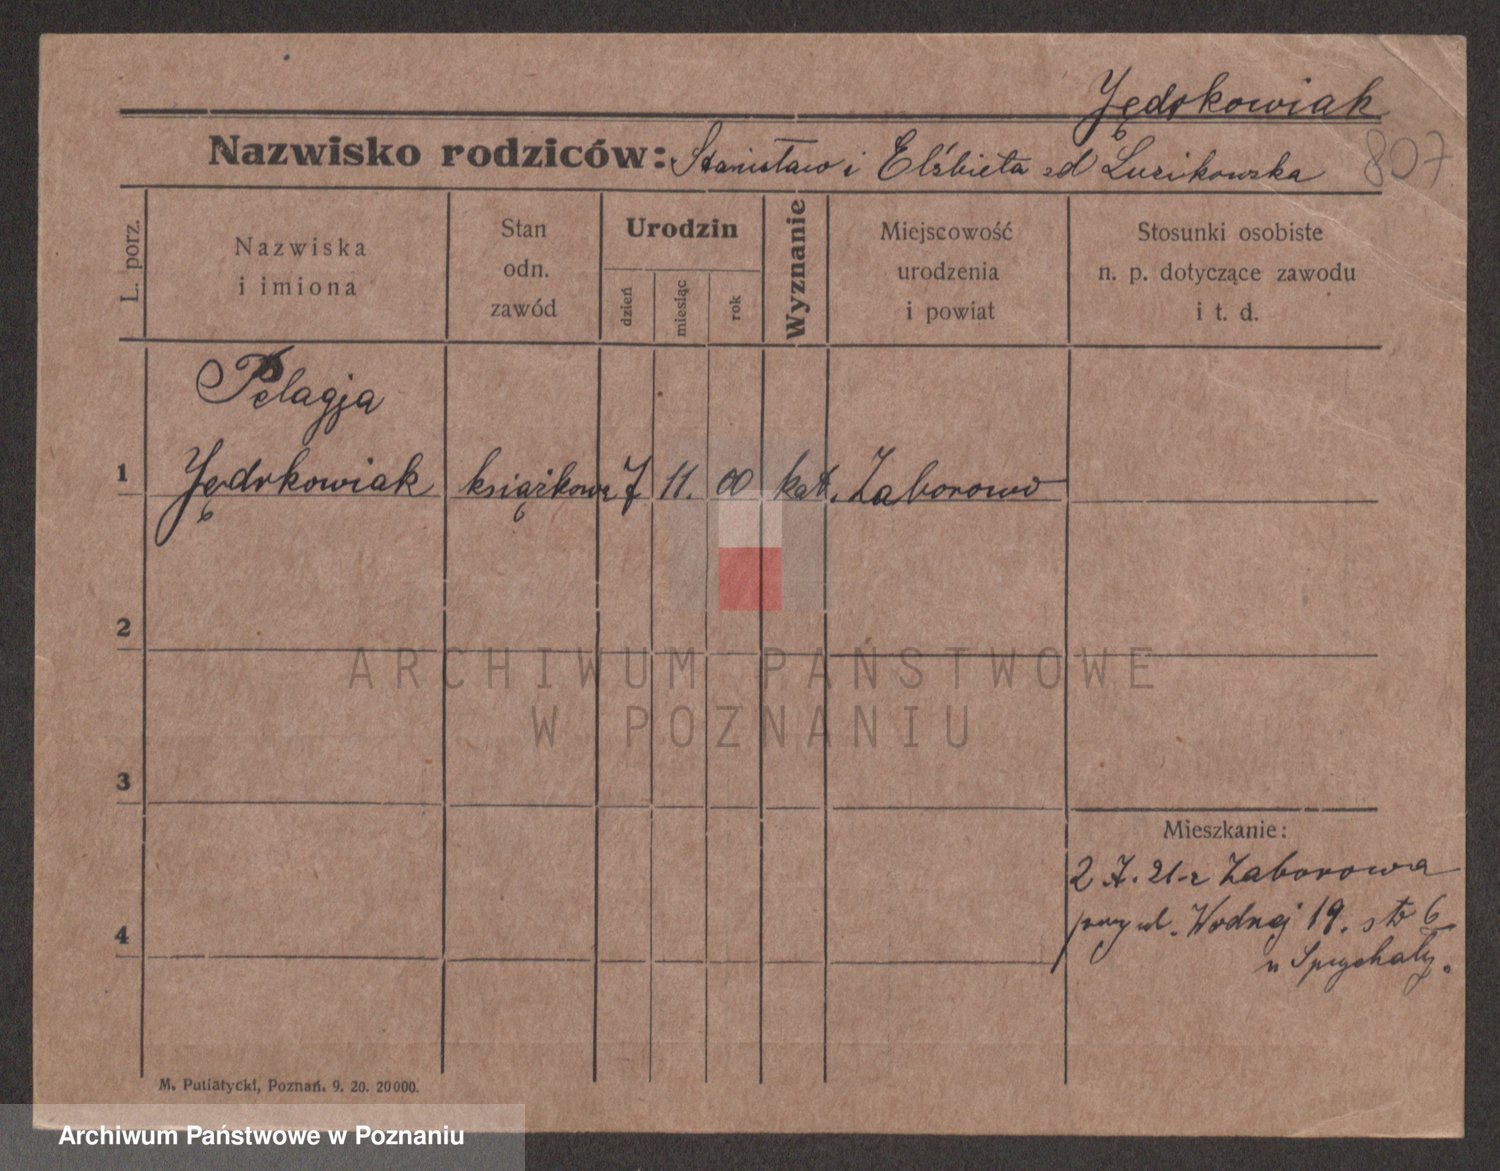 Jędrkowiak
Nazwisko rodziców: Stanisław i Elżbieta zd Luzikowska
807
L. porz.
Nazwiska
i imiona
Stan
odn.
zawód
Urodzin
dzień
miesiąc
rok
Wyznanie
Miejscowość
urodzenia
i powiat
Stosunki osobiste
n. p. dotyczące zawodu
i t. d.
Pelagja
1 Jędrkowiak książkowa 7 11. 00 kat. Zaborowo
2
ARCHIWUM PAŃSTWOWE
W POZNANIU
3
Mieszkanie:
2 7. 21 z Zaborowa
przy ul. Wodnej 19. 6
4
u Spychały.
M. Putiatycki, Poznań. 9. 20. 20000.
Archiwum Państwowe w Poznaniu